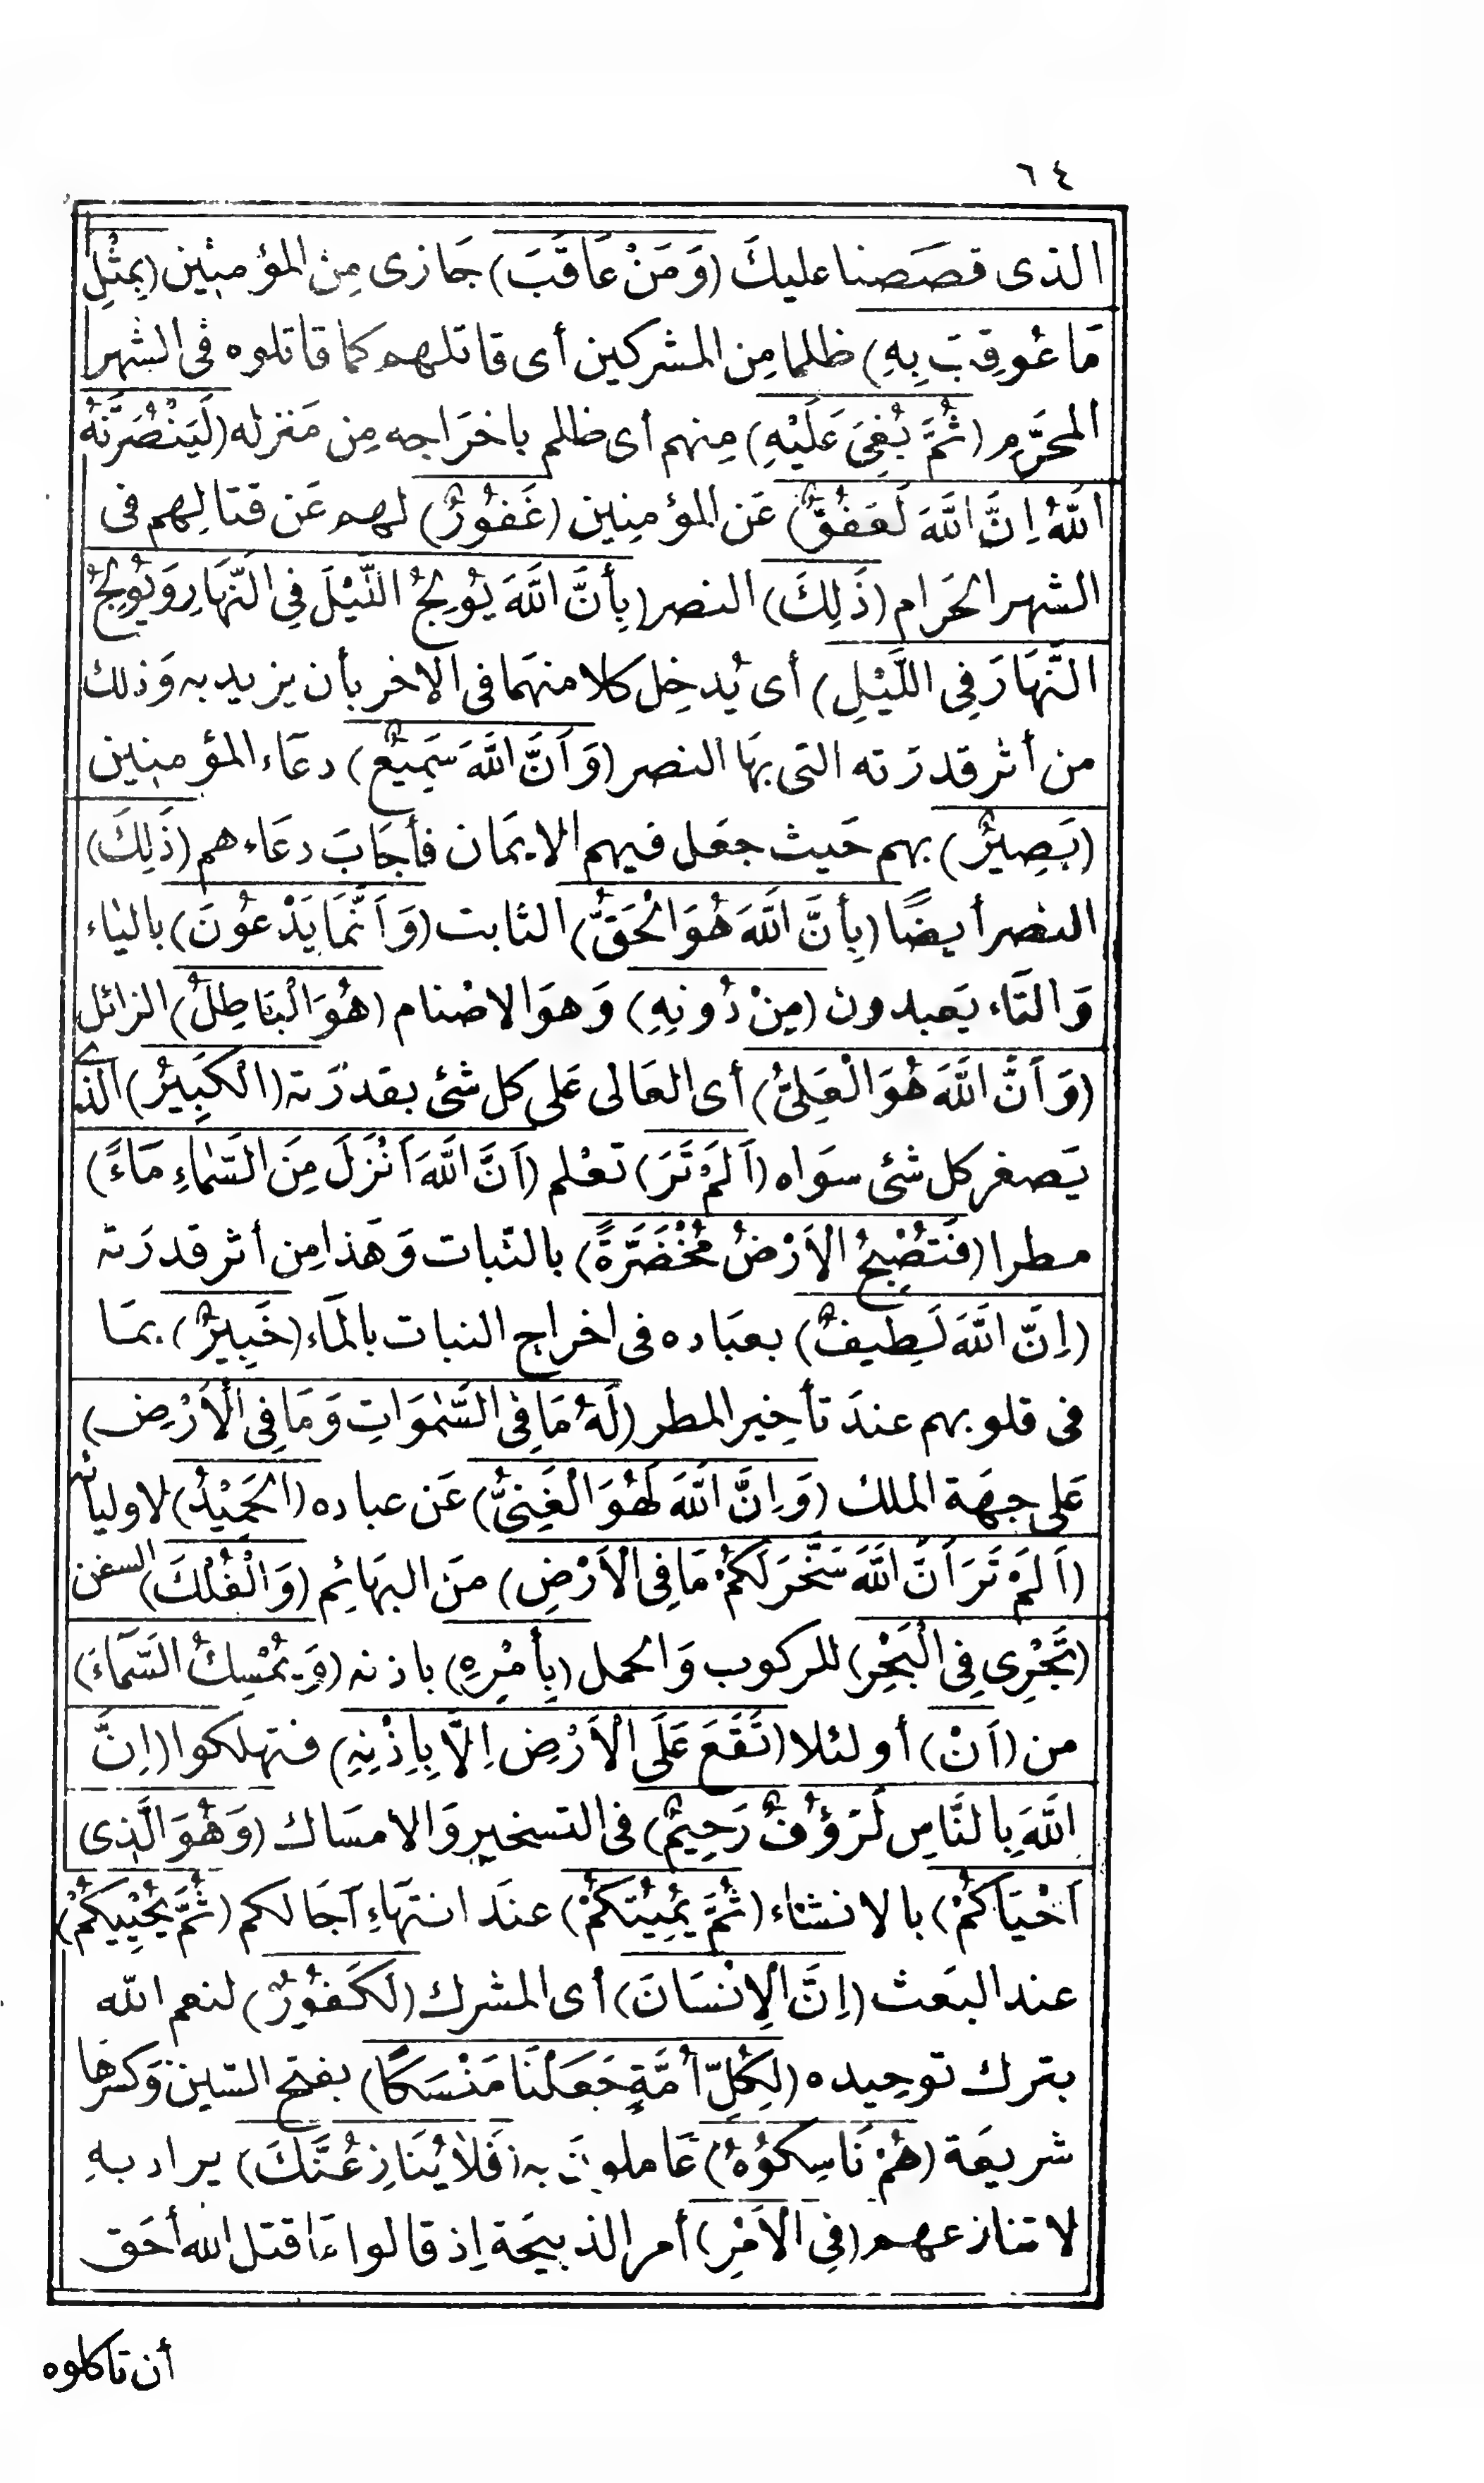 ٦٤
الذى قصَصنا عليكَ (وَمَنْ عَاقَبَ) جَازى مِن المؤمنين (بِمِثْلِ
مَا عُوقِبَ بِهِ) ظلما مِن المشركين أى قاتلهم كما قاتلوه فى الشهر
المحرَّمِ (ثُمَّ بُغِىَ عَلَيْهِ) مِنهم أى ظلم باخرَاجه مِن مَنزله (لَيَنْصُرَنَّهُ
اللَّهُ اِنَّ اللَّهَ لَعَفُوٌّ) عَن المؤمِنِين (غَفُورٌ) لهم عَن قتالِهم فى
الشهر الحَرَام (ذَلِكَ) النصر (بِأَنَّ اللَّهَ يُولِجُ اللَّيْلَ فِى النَّهَارِ وَيُولِجُ
النَّهَارَ فِى اللَّيْلِ) أى يُدخِل كلا منهمَا فى الاخر بأن يزيد به وَذلك
من أثر قدرَته التى بهَا النصر (وَاَنَّ اللَّهَ سَمِيعٌ) دعَاء المؤمنين
(بَصِيرٌ) بهم حَيث جعَل فيهم الايمَان فأجَابَ دعَاءهم (ذَلِكَ)
النصر أيضًا (بِأَنَّ اللَّهَ هُوَ الْحَقُّ) الثابت (وَاَنَّمَا يَدْعُونَ) بالياء
وَالتَاء يَعبدون (مِنْ دُونِهِ) وَهوَ الاصْنام (هُوَ الْبَاطِلُ) الزائل
(وَاَنَّ اللَّهَ هُوَ الْعَلِىُّ) أى العَالى عَلى كل شئ بقدرَته (الْكَبِيرُ) الذى
يَصغر كل شئ سوَاه (اَلَمْ تَرَ) تعْلم (اَنَّ اللَّهَ اَنْزَلَ مِنَ السَّمَاءِ مَاءً)
مطرا (فَتُصْبِحُ الْاَرْضُ مُخْضَرَّةً) بالنّبات وَهَذا مِن أثر قدرَته
(اِنَّ اللَّهَ لَطِيفٌ) بعبَاده فى اخراج النبات بالمَاء (خَبِيرٌ) بمَا
فى قلوبهم عندَ تأخِير المطر (لَهُ مَا فِى السَّمٰوَاتِ وَمَا فِى الْاَرْضِ)
عَلى جِهَة الملك (وَاِنَّ اللَّهَ لَهُوَ الْغَنِىُّ) عَن عباده (الْحَمِيْدُ) لاوليائه
(اَلَمْ تَرَ اَنَّ اللَّهَ سَخَّرَ لَكُمْ مَا فِى الْاَرْضِ) مَن البهَائِم (وَالْفُلْكَ) السفن
(تَجْرِى فِى الْبَحْرِ) للركوب وَالحمل (بِأَمْرِهِ) باذنه (وَيُمْسِكُ السَّمَآءَ)
من (اَنْ) أو لئلا (تَقَعَ عَلَى الْاَرْضِ اِلَّا بِاِذْنِهِ) فتهلكوا (اِنَّ
اللَّهَ بِالنَّاسِ لَرَؤُفٌ رَحِيمٌ) فى التسخير وَالامسَاك (وَهُوَ الَّذِى
اَحْيَاكُمْ) بالانشاء (ثُمَّ يُمِيتُكُمْ) عندَ انتهَاءِ آجَالكم (ثُمَّ يُحْيِيكُمْ)
عند البَعث (اِنَّ الْاِنْسَانَ) أى المشرك (لَكَفُورٌ) لنعم الله
بترك توحِيده (لِكُلِّ اُمَّةٍ جَعَلْنَا مَنْسَكًا) بفتح السّين وَكسرهَا
شريعَة (هُمْ نَاسِكُوْهُ) عَاملونَ به (فَلَا يُنَازِعُنَّكَ) يراد بهِ
لا تنازعهم (فِى الْاَمْرِ) أمر الذبيحَة اِذ قالوا مَا قتل الله أحَق
أن تاكلوه